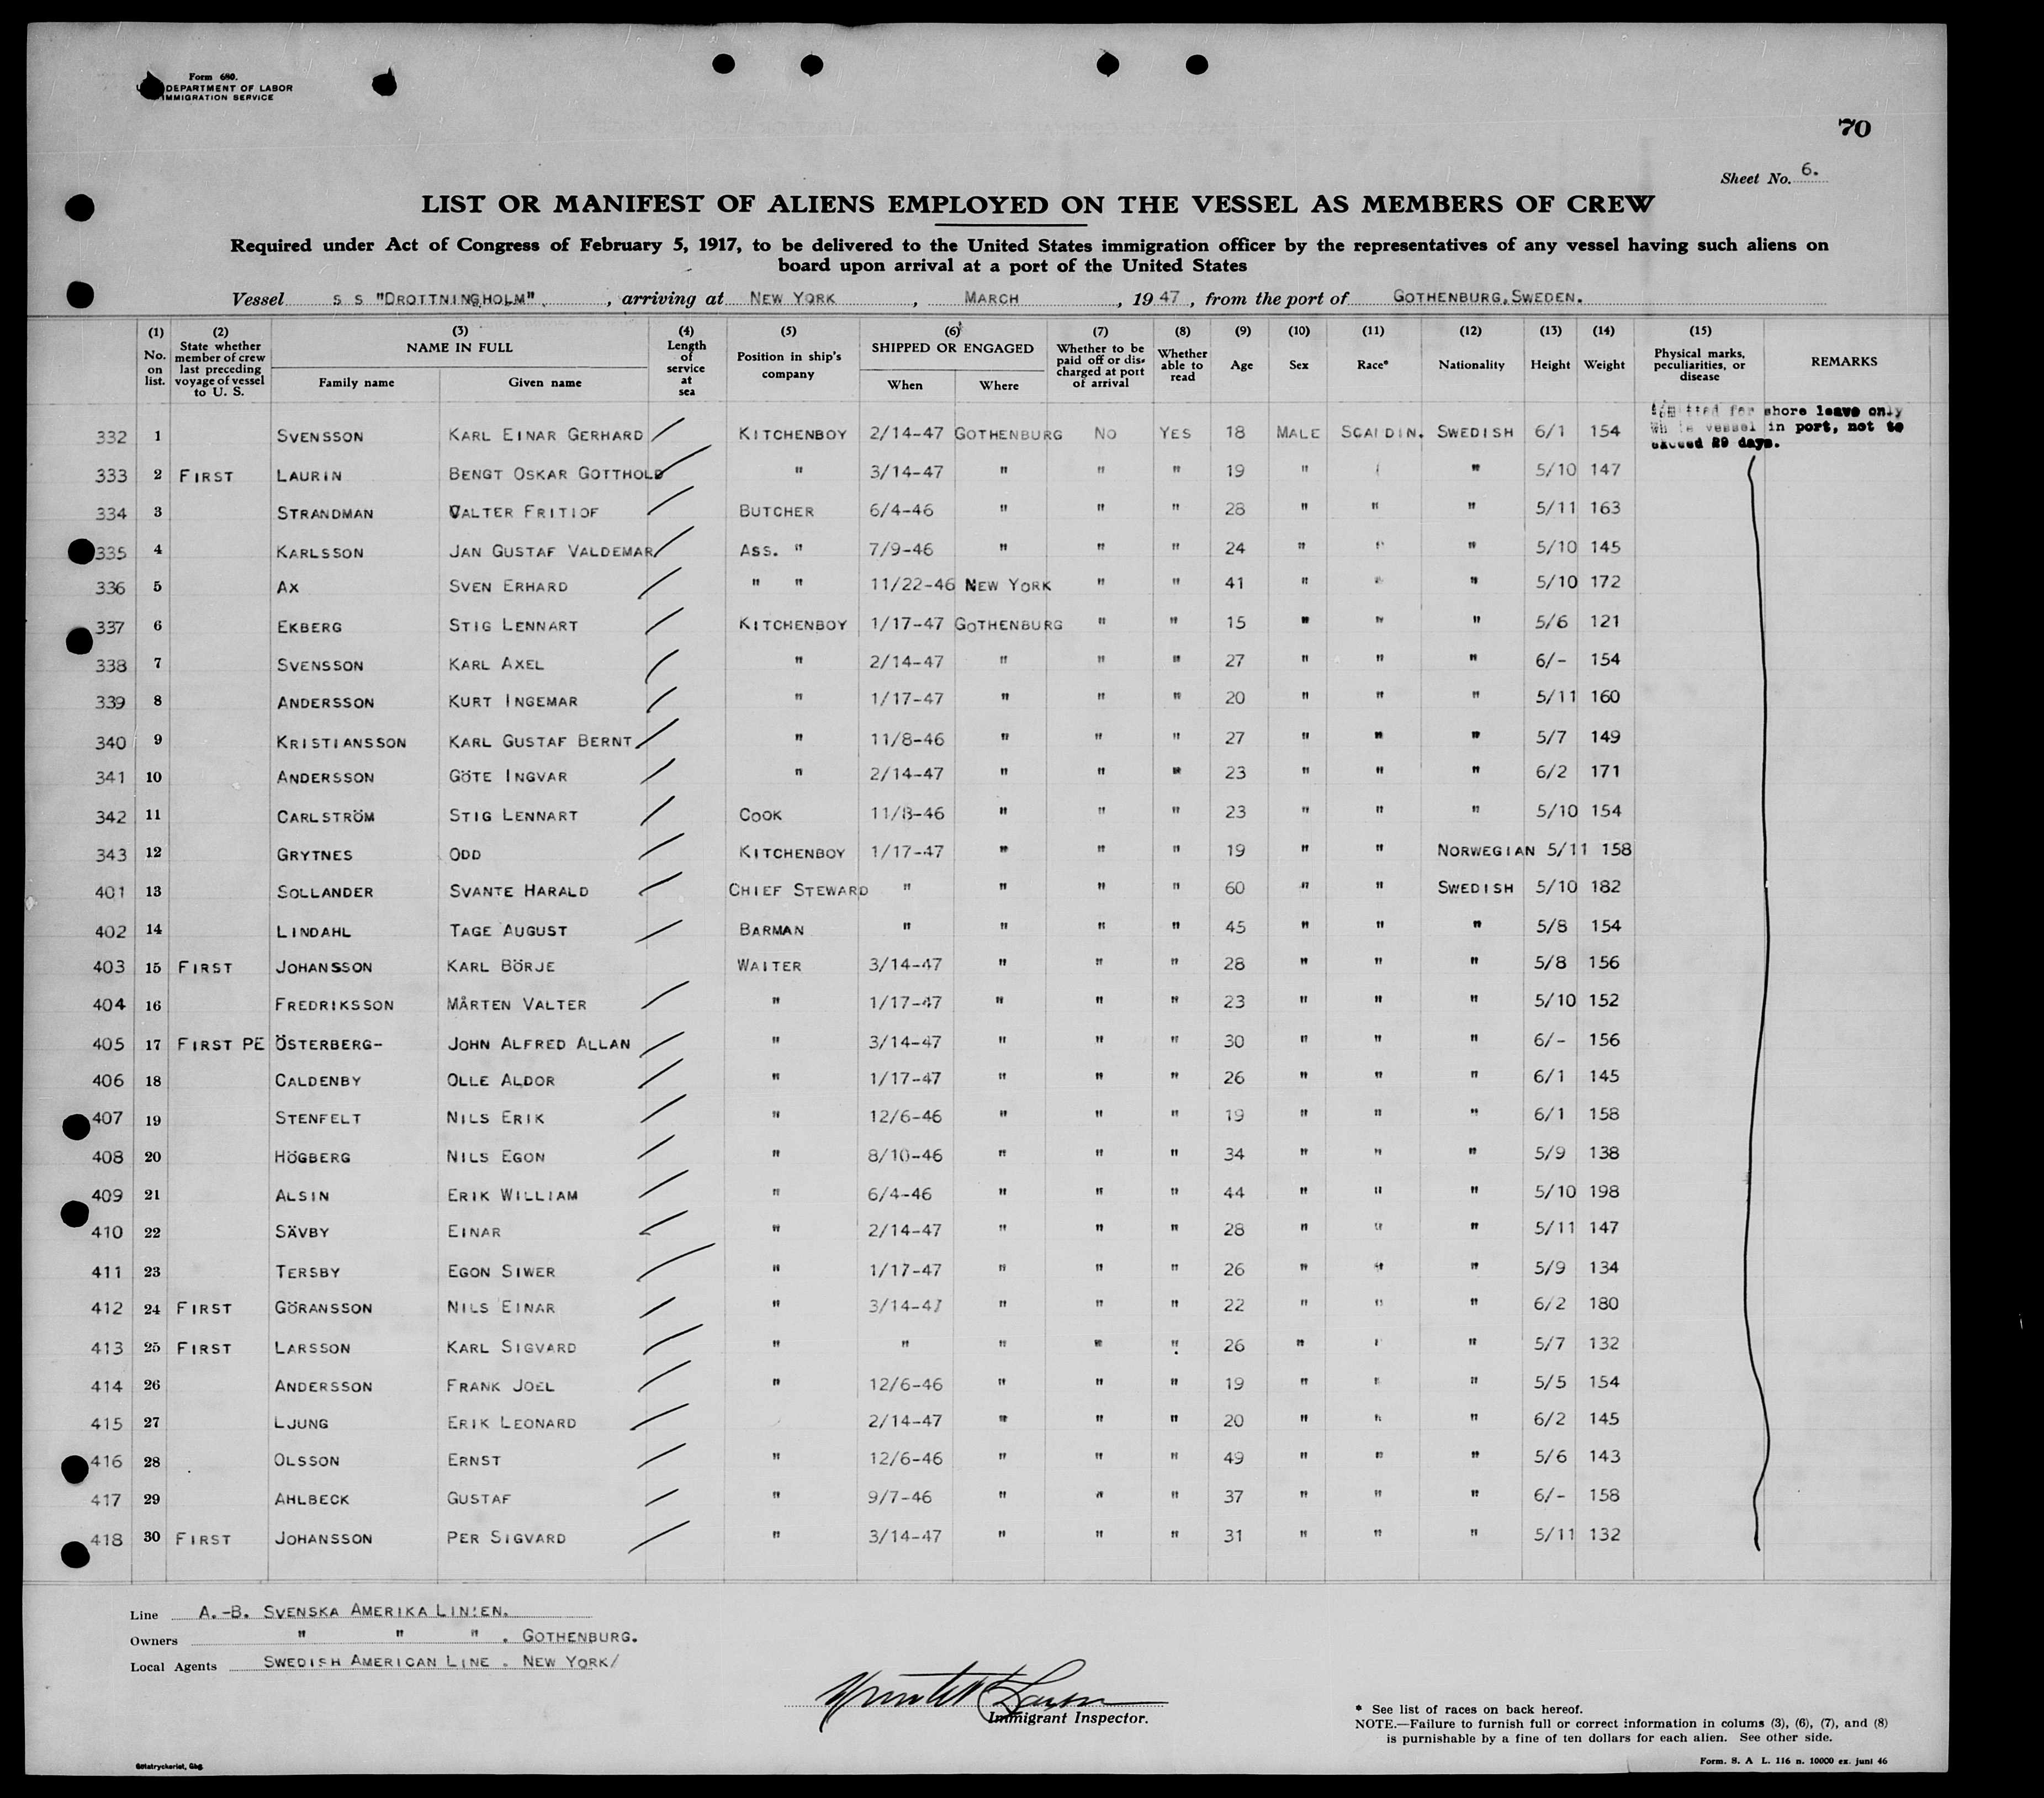 Form 680.
DEPARTMENT OF LABOR
IMMIGRATION SERVICE
70
Sheet No. 6.
LIST OR MANIFEST OF ALIENS EMPLOYED ON THE VESSEL AS MEMBERS OF CREW
Required under Act of Congress of February 5, 1917, to be delivered to the United States immigration officer by the representatives of any vessel having such aliens on
board upon arrival at a port of the United States
Vessel S S "DROTTNINGHOLM", arriving at NEW YORK, MARCH, 1947, from the port of GOTHENBURG, SWEDEN.
(1) No. on list. (2) State whether member of crew last preceding voyage of vessel to U. S. (3) NAME IN FULL Family name Given name (4) Length of service at sea (5) Position in ship's company (6) SHIPPED OR ENGAGED When Where (7) Whether to be paid off or discharged at port of arrival (8) Whether able to read (9) Age (10) Sex (11) Race* (12) Nationality (13) Height (14) Weight (15) Physical marks, peculiarities, or disease REMARKS
Admitted for shore leave only
while vessel in port, not to
exceed 29 days.
332 1 SVENSSON KARL EINAR GERHARD KITCHENBOY 2/14-47 GOTHENBURG NO YES 18 MALE SCANDIN. SWEDISH 6/1 154
333 2 FIRST LAURIN BENGT OSKAR GOTTHOLD " 3/14-47 " " " 19 " " 5/10 147
334 3 STRANDMAN VALTER FRITIOF BUTCHER 6/4-46 " " " 28 " " " 5/11 163
335 4 KARLSSON JAN GUSTAF VALDEMAR ASS. " 7/9-46 " " " 24 " " " 5/10 145
336 5 AX SVEN ERHARD " " 11/22-46 NEW YORK " " 41 " " " 5/10 172
337 6 EKBERG STIG LENNART KITCHENBOY 1/17-47 GOTHENBURG " " 15 " " " 5/6 121
338 7 SVENSSON KARL AXEL " 2/14-47 " " " 27 " " " 6/- 154
339 8 ANDERSSON KURT INGEMAR " 1/17-47 " " " 20 " " " 5/11 160
340 9 KRISTIANSSON KARL GUSTAF BERNT " 11/8-46 " " " 27 " " " 5/7 149
341 10 ANDERSSON GÖTE INGVAR " 2/14-47 " " " 23 " " " 6/2 171
342 11 CARLSTRÖM STIG LENNART COOK 11/8-46 " " " 23 " " " 5/10 154
343 12 GRYTNES ODD KITCHENBOY 1/17-47 " " " 19 " " NORWEGIAN 5/11 158
401 13 SOLLANDER SVANTE HARALD CHIEF STEWARD " " " " 60 " " SWEDISH 5/10 182
402 14 LINDAHL TAGE AUGUST BARMAN " " " " 45 " " " 5/8 154
403 15 FIRST JOHANSSON KARL BÖRJE WAITER 3/14-47 " " " 28 " " " 5/8 156
404 16 FREDRIKSSON MÅRTEN VALTER " 1/17-47 " " " 23 " " " 5/10 152
405 17 FIRST PE ÖSTERBERG- JOHN ALFRED ALLAN " 3/14-47 " " " 30 " " " 6/- 156
406 18 CALDENBY OLLE ALDOR " 1/17-47 " " " 26 " " " 6/1 145
407 19 STENFELT NILS ERIK " 12/6-46 " " " 19 " " " 6/1 158
408 20 HÖGBERG NILS EGON " 8/10-46 " " " 34 " " " 5/9 138
409 21 ALSIN ERIK WILLIAM " 6/4-46 " " " 44 " " " 5/10 198
410 22 SÄVBY EINAR " 2/14-47 " " " 28 " " " 5/11 147
411 23 TERSBY EGON SIWER " 1/17-47 " " " 26 " " " 5/9 134
412 24 FIRST GÖRANSSON NILS EINAR " 3/14-47 " " " 22 " " " 6/2 180
413 25 FIRST LARSSON KARL SIGVARD " " " " " 26 " " " 5/7 132
414 26 ANDERSSON FRANK JOEL " 12/6-46 " " " 19 " " " 5/5 154
415 27 LJUNG ERIK LEONARD 2/14-47 " " " 20 " " " 6/2 145
416 28 OLSSON ERNST " 12/6-46 " " " 49 " " " 5/6 143
417 29 AHLBECK GUSTAF " 9/7-46 " " " 37 " " " 6/- 158
418 30 FIRST JOHANSSON PER SIGVARD " 3/14-47 " " " 31 " " " 5/11 132
Line A.-B. SVENSKA AMERIKA LINIEN.
Owners " " " . GOTHENBURG.
Local Agents SWEDISH AMERICAN LINE . NEW YORK/
Immigrant Inspector.
* See list of races on back hereof.
NOTE.—Failure to furnish full or correct information in colums (3), (6), (7), and (8)
is purnishable by a fine of ten dollars for each alien. See other side.
Götatryckeriet, Gbg.
Form. S. A L. 116 n. 10000 ex. juni 46